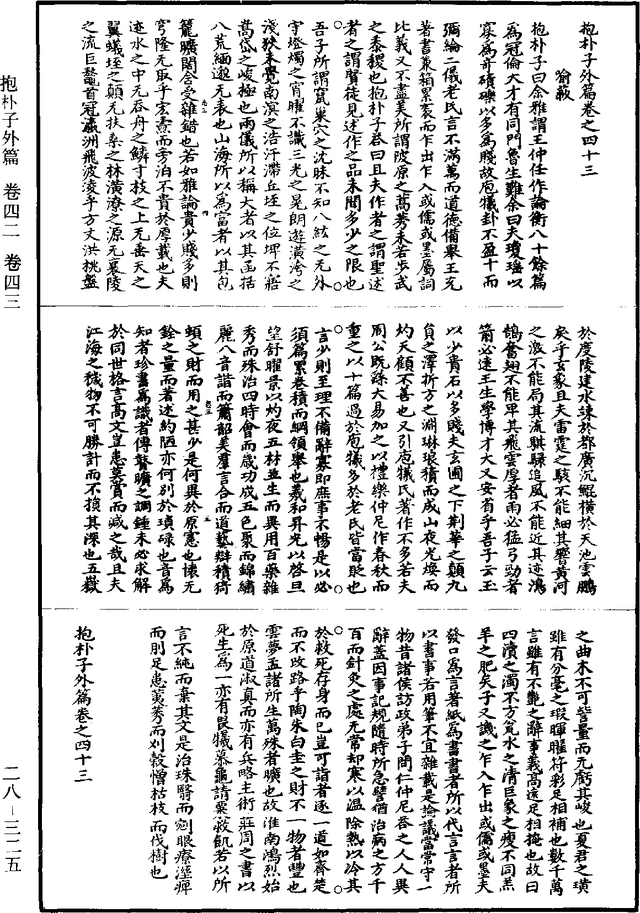 抱朴子外篇卷之四十三
喻蔽
抱朴子曰余雅謂王仲任作論衡八十餘篇
為冠倫大才有同門魯生難余曰夫瓊瑤以
寡為奇磧礫以多為賤故庖犧卦不盈十而
彌綸二儀老氏言不滿萬而道德備舉王充
著書兼箱累袠而乍出乍入或儒或墨屬詞
比義又不盡美所謂陂原之蒿莠未若步武
之黍稷也抱朴子荅曰且夫作者之謂聖述
者之謂賢徒見述作之品未聞多少之限也
吾子所謂竄巢穴之沈昧不知八紘之无外
守燈燭之宵曜不識三光之晃朗遊潢洿之
淺狹未覺南溟之浩汗滯丘垤之位埤不寤
嵩岱之峻極也兩儀所以稱大者以其函括
八荒緬邈无表也山海所以為富者以其包
籠曠闊含受雜錯也若如雅論貴少賤多則
穹隆无取乎宏燾而旁泊不貴於厚載也夫
迹水之中无吞舟之鱗寸枝之上无垂天之
翼蟻垤之顛无扶桑之林潢潦之源无襄陵
之流巨鼇首冠瀛洲飛波淩乎方丈洪桃盤
於度陵建水竦於都廣沉鯤橫於天池雲鵬
戾乎玄象且夫雷霆之駭不能細其響黃河
之激不能局其流騏騄追風不能近其迹鴻
鵠奮翅不能卑其飛雲厚者雨必猛弓勁者
箭必遠王生學博才大又安省乎吾子云玉
以少貴石以多賤夫玄圃之下荊華之顛九
員之澤折方之淵琳琅積而成山夜光煥而
灼天顧不善也又引庖犧氏著作不多若夫
周公既繇大易加之以禮樂仲尼作春秋而
重之以十篇過於庖犧多於老氏皆當貶也
言少則至理不備辭寡即庶事不暢是以必
須篇累卷積而綱領舉也羲和昇光以啓旦
望舒曜景以灼夜五材並生而異用百藥雜
秀而殊治四時會而歲功成五色聚而錦繡
麗八音諧而簫韶美羣言合而道藝辯積猗
頓之財而用之甚少是何異於原憲也懷无
銓之量而著述約陋亦何別於瑣碌也音為
知者珍書為識者傳瞽曠之調鍾未必求解
於同世格言高文豈患莫賞而減之哉且夫
江海之穢物不可勝計而不損其深也五嶽
之曲木不可訾量而无虧其峻也夏君之璜
雖有分毫之瑕暉曜符彩足相補也數千萬
言雖有不豔之辭事義高遠足相掩也故曰
四瀆之濁不方瓮水之清巨象之瘦不同羔
羊之肥矣子又譏之乍入乍出或儒或墨夫
發口為言著紙為書書者所以代言言者所
以書事若用筆不宜雜載是論議當常守一
物昔諸侯訪政弟子問仁仲尼荅之人人異
辭蓋因事託規隨時所急譬猶治病之方千
百而針灸之處无常却寒以溫除熱以冷其
於救死存身而已豈可詣者逐一道如齊楚
而不改路乎陶朱白圭之財不一物者豐也
雲夢孟諸所生萬殊者曠也故淮南鴻烈始
於原道淑真而亦有兵略主術莊周之書以
死生為一亦有畏犧慕龜請粟救飢若以所
言不純而棄其文是治珠翳而剜眼療溼痹
而刖足患荑莠而刈穀憎枯枝而伐樹也
抱朴子外篇卷之四十三
抱朴子外篇 卷四二 卷四三
二八－三二五